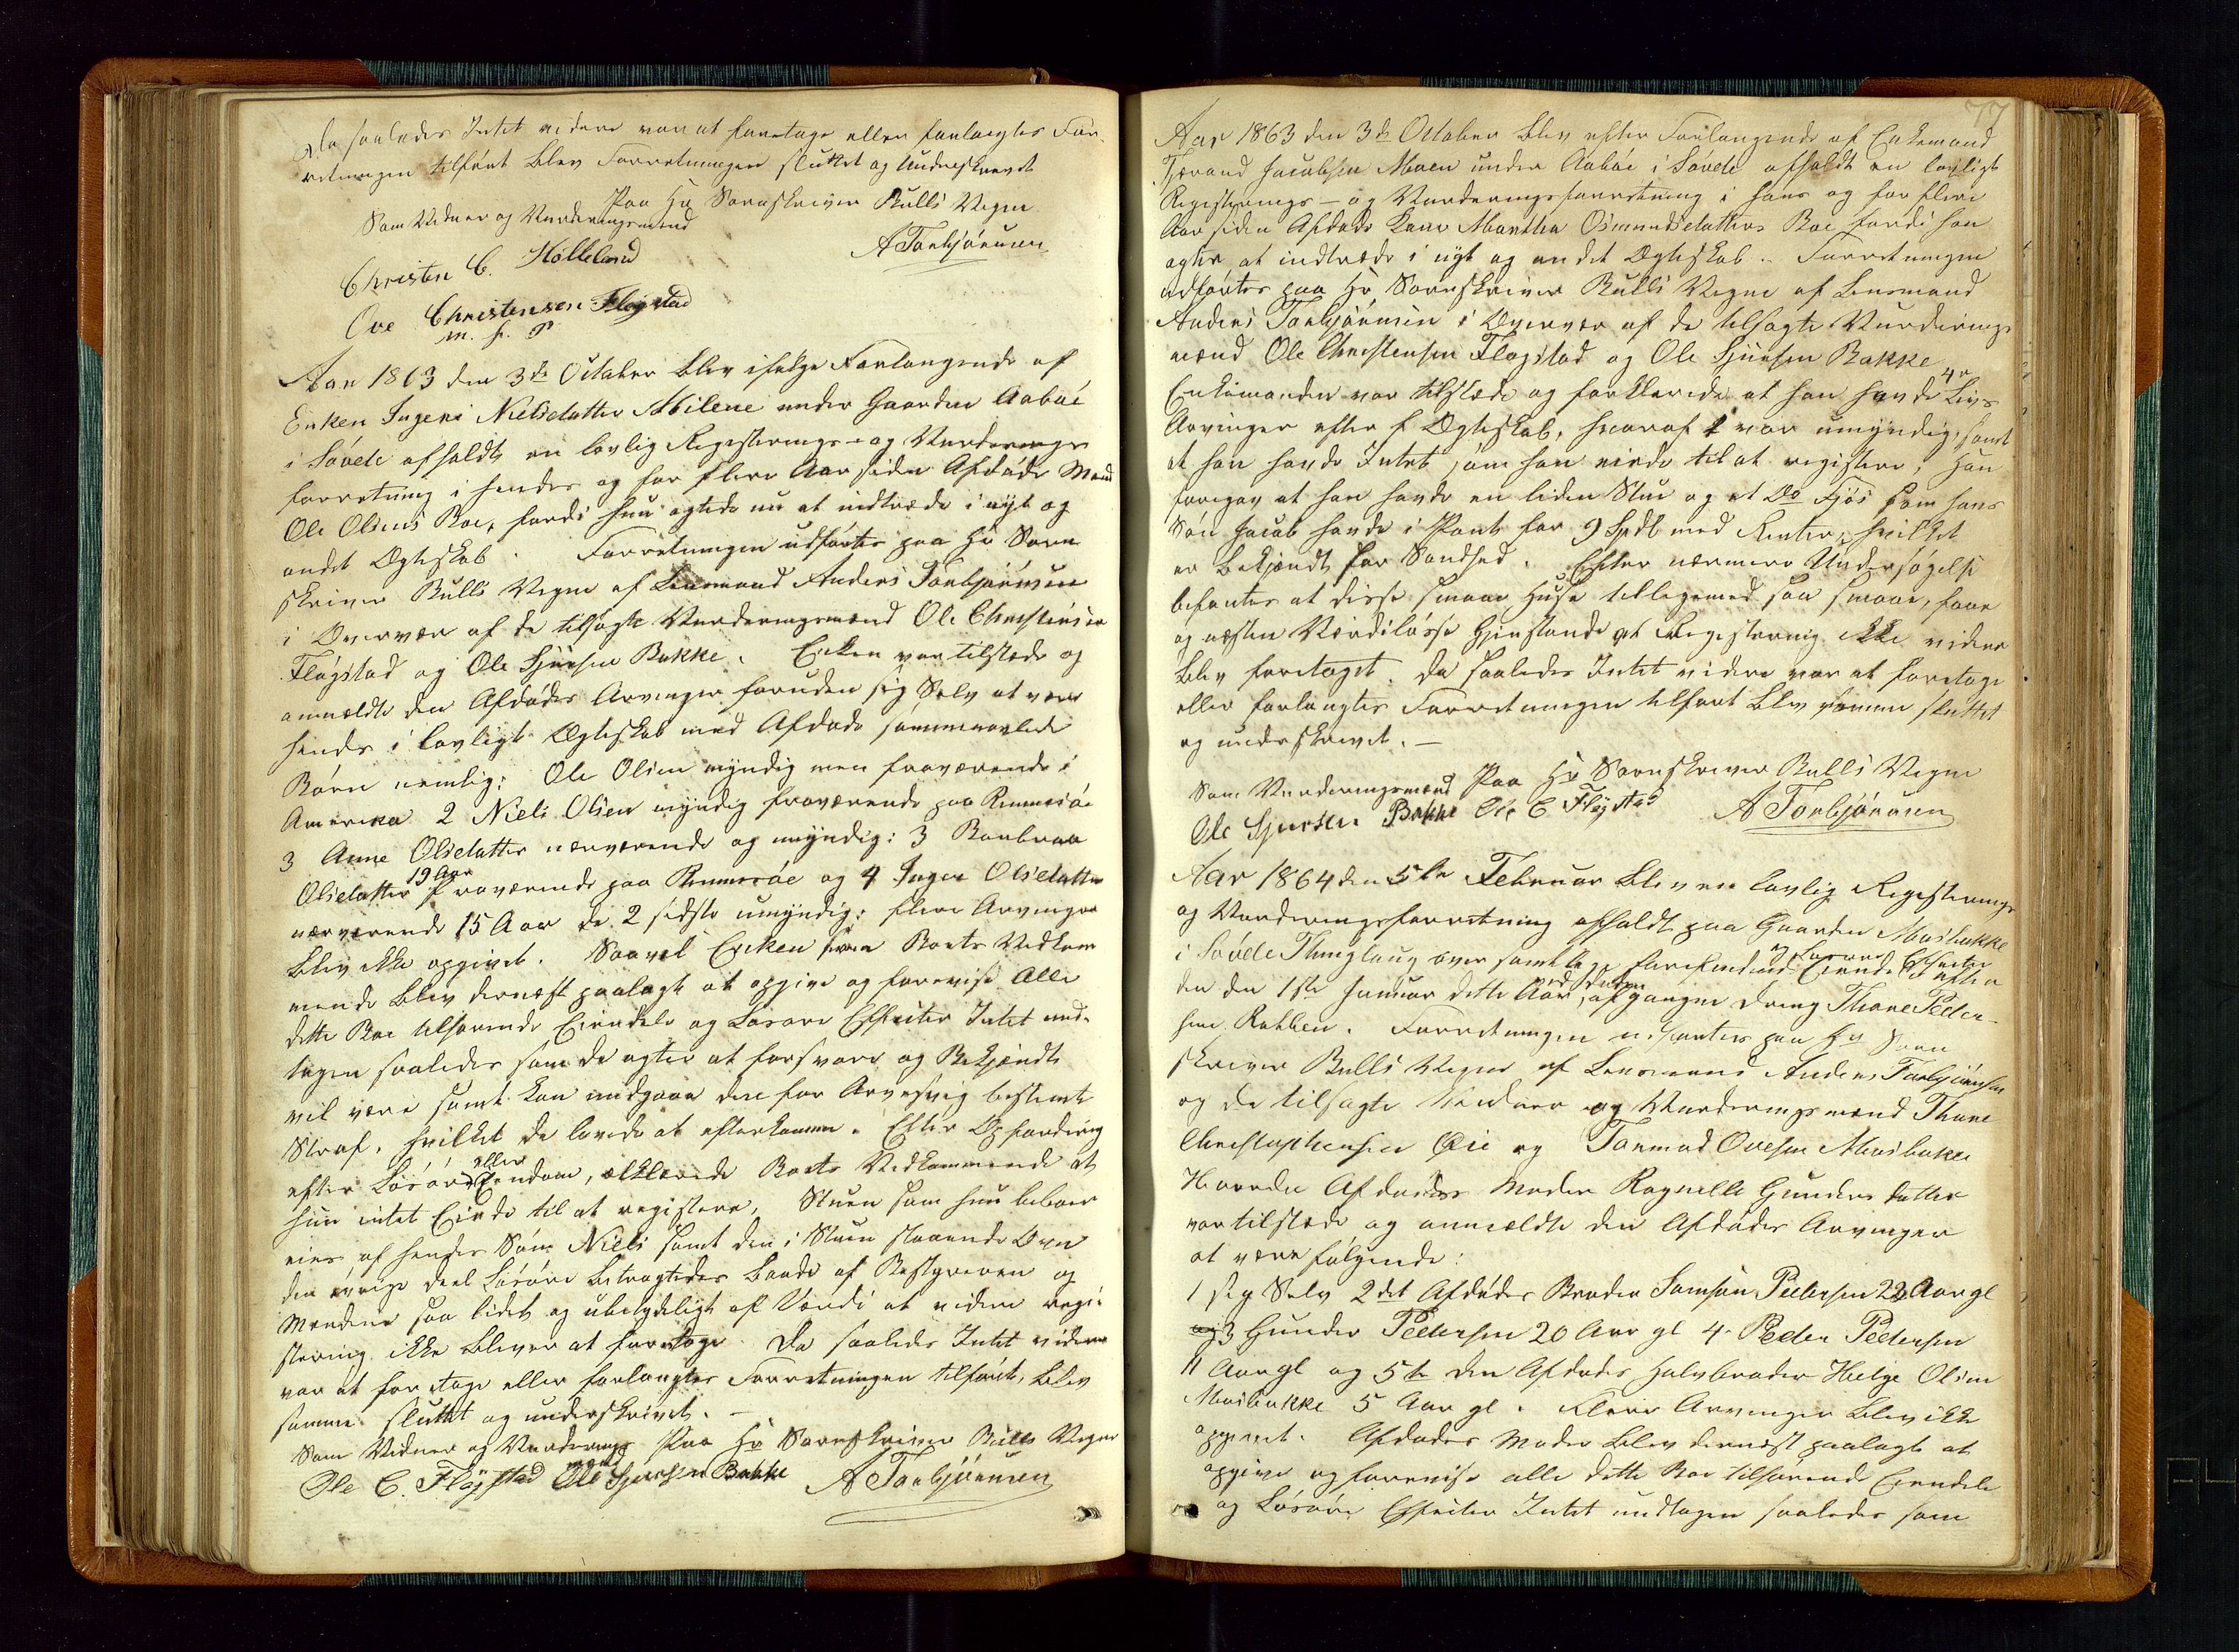 Da saaledes Intet videre var at foretage eller forlangtes For-
retningen tilført blev Forretningen sluttet og underskrevet
Paa Hr Sorenskriver Bulls Vegne
Som Vidner og Vurderingsmænd
A Torbjörnsen
Christen C. Hølleland
Ove Christensen Fløgstad
m. f. P
Aar 1863 den 3de October blev ifølge Forlangende af
Enken Ingeri Nielsdatter Mbilene under Gaarden Aabøe
i Søvde afholdt en lovlig Registerings- og Vurderings
forretning i hendes og for flere Aar siden Afdøde Mand
Ole Olsens Boe, fordi hun agtede nu at indtræde i nyt og
andet Ægteskab. Forretningen udførtes paa Hr Soren
skriver Bulls Vegne af Lensmand Anders Torbjørnsen
i Overvær af de tilsagte Vurderingsmænd Ole Christensen
Fløgstad og Ole Sjursen Bakke. Enken var tilstede og
anmeldte den Afdødes Arvinger foruden sig Selv at være
hendes i lovligt Ægteskab med Afdøde sammenavlede
Børn nemlig: Ole Olsen myndig men fraværende i
Amerika 2 Niels Olsen myndig fraværende paa Rennesøe
3 Anne Olsdatter nærværende og myndig: 3 Barbraa
Olsdatter 19 Aar fraværende paa Rennesøe og 4 Inger Olsdatter
nærværende 15 Aar de 2 sidste umyndig: flere Arvinger
blev ikke opgivet. Saavel Enken som Boets Vedkom
mende blev dernæst paalagt at opgive og forevise Alle
dette Boe tilhørende Eiendele og Løsøre Effecter Intet und-
tagen saaledes som de agter at forsvare og Bekjendt
vil være samt kan undgaae den for Arvesvig bestemte
Straf, hvilket de lovede at efterkomme. Efter Opfordring
efter Løsøre eller Eiendom, erklærede Boets Vedkommende at
hun intet Eiede til at registere, Stuen som hun beboer
eies af hendes Søn Niels samt den i Stuen staaende Ovn
den øvrige deel Løsøre betragtedes baade af Bestyreren og
Mændene saa lidet og ubetydeligt af Værdi at videre regi-
stering ikke bliver at foretage. Da saaledes Intet videre
var at foretage eller forlangtes Forretningen tilført, blev
samme sluttet og underskrivet. –
Som Vidner og Vurderings mænd Paa Hr Sorenskriver Bulls Vegne
Ole C. Fløgstad Ole Sjursen Bakke A Torbjörnsen
77
Aar 1863 den 3de October blev efter Forlangende af Enkemand
Tjærand Jacobsen Moen under Aabøe i Søvde afholdt en lovligt
Registerings- og Vurderingsforretning i hans og for flere
Aar siden Afdøde Kone Marthe Osmundsdatters Boe fordi han
agter at indtræde i nyt og andet Ægteskab. Forretningen
udførtes paa Hr Sorenskriver Bulls Vegne af Lensmand
Anders Torbjörnsen i Overvær af de tilsagte Vurderings
mænd Ole Christensen Fløgstad og Ole Sjursen Bakke
Enkemanden var tilstede og forklarede at han havde 4re Livs
Arvinger efter f Ægteskab, hvoraf 1 var umyndig, samt
at han havde Intet som han eiede til at registere; Han
foregav at han havde en liden Stue og et Do Fjøs som hans
Søn Jacob havde i Pant for 9 Spdl med Renter, hvilket
er bekjendt for Sandhed. Efter nærmere Undersøgelse
befantes at disse smaae Huse tilligemed saa smaae, faae
og næsten Værdiløsse Gjenstande at Registering ikke videre
blev foretaget. Da saaledes Intet videre var at foretage
eller forlangtes Forretningen tilført blev samme sluttet
og underskrevet. –
Som Vurderingsmænd Paa Hr Sorenskriver Bulls Vegne
Ole Sjursen Bakke Ole C Fløgstad A Torbjörnsen
Aar 1864 den 5te Februar blev en lovlig Registerings
og Vurderingsforretning afholdt paa Gaarden Mosbakke
i Søvde Thinglaug over samtlige forefindende Eiendele og Løsøre Effecter efter
den den 1ste Januar dette Aar ved Døden afgangne Dreng Thore Peder-
sen Rabben. Forretningen udførtes paa Hr Soren
skriver Bulls Vegne af Lensmand Anders Torbjørnsen
og de tilsagte Vidner og Vurderingsmænd Thore
Christophersen Øie og Tormod Ovesen Mosbakke
Hvorda Afdødes Moder Ragnelle Gundersdatter
var tilstede og anmeldte den Afdødes Arvinger
at være følgende:
1 sig Selv 2det Afdødes Broder Samson Pedersen 22 Aar gl
og 3 Gunder Pedersen 20 Aar gl 4. Peder Pedersen
11 Aar gl og 5te den Afdødes Halvbroder Helge Olsen
Mosbakke 5 Aar gl. Flere Arvinger blev ikke
opgivet. Afdødes Moder blev dernæst paalagt at
opgive og forevise alle dette Boe tilhørende Eiendele
og Løsøre Effecter Intet undtagen saaledes som